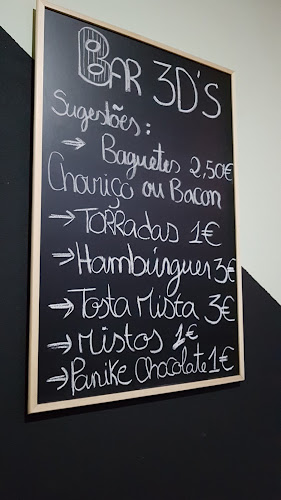 BAR 3D'S
Sugestões:
→ Baguetes 2,50€
Chouriço ou Bacon
→ TORRADAS 1€
→ Hambúrgues 3€
→ Tosta Mista 3€
→ Mistos 1€
→ Panike Chocolate 1€